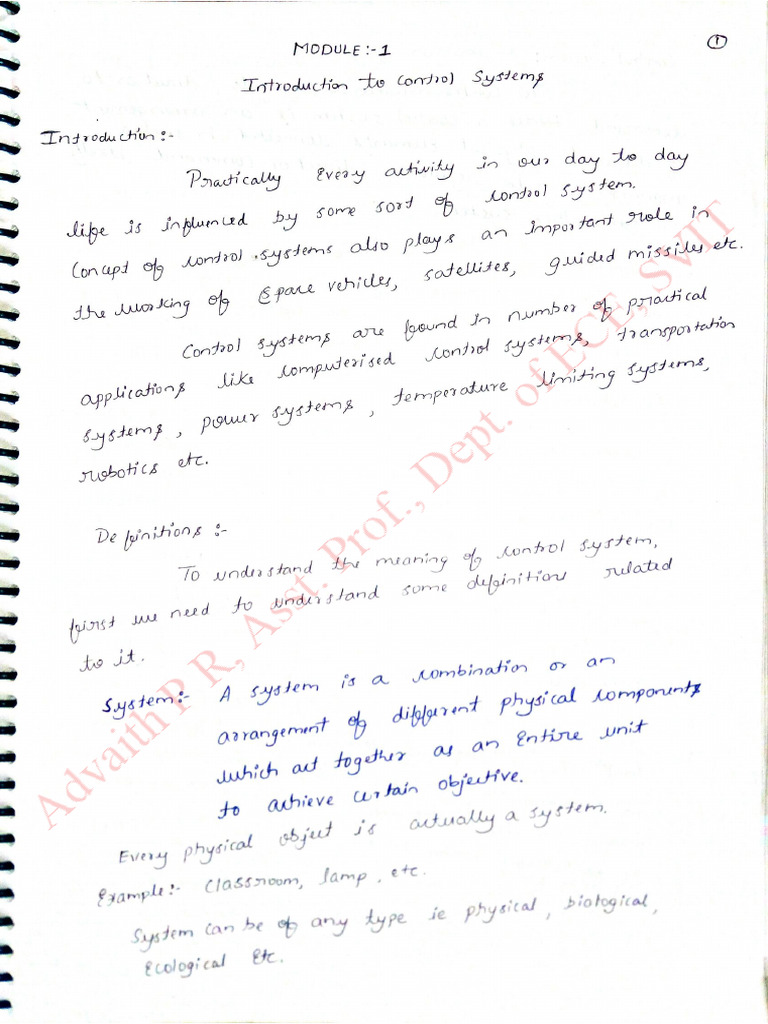 1
MODULE:-1
Introduction to control Systems
Introduction:-
Practically Every activity in our day to day
life is influenced by some sort of control system.
Concept of control systems also plays an important role in
the working of space vehicles, satellites, guided missiles etc.
Control systems are found in number of practical
applications like computerised control systems, transportation
systems, power systems, temperature limiting systems,
robotics etc.
Definitions:-
To understand the meaning of control system,
first we need to understand some definition related
to it.
System:- A system is a combination or an
arrangement of different physical components
which act together as an Entire unit
to achieve certain objective.
Every physical object is actually a system.
Example:- classroom, lamp, etc.
System can be of any type ie physical, biological,
Ecological Etc.
Advaith P R, Asst. Prof., Dept. of ECE, SVIT